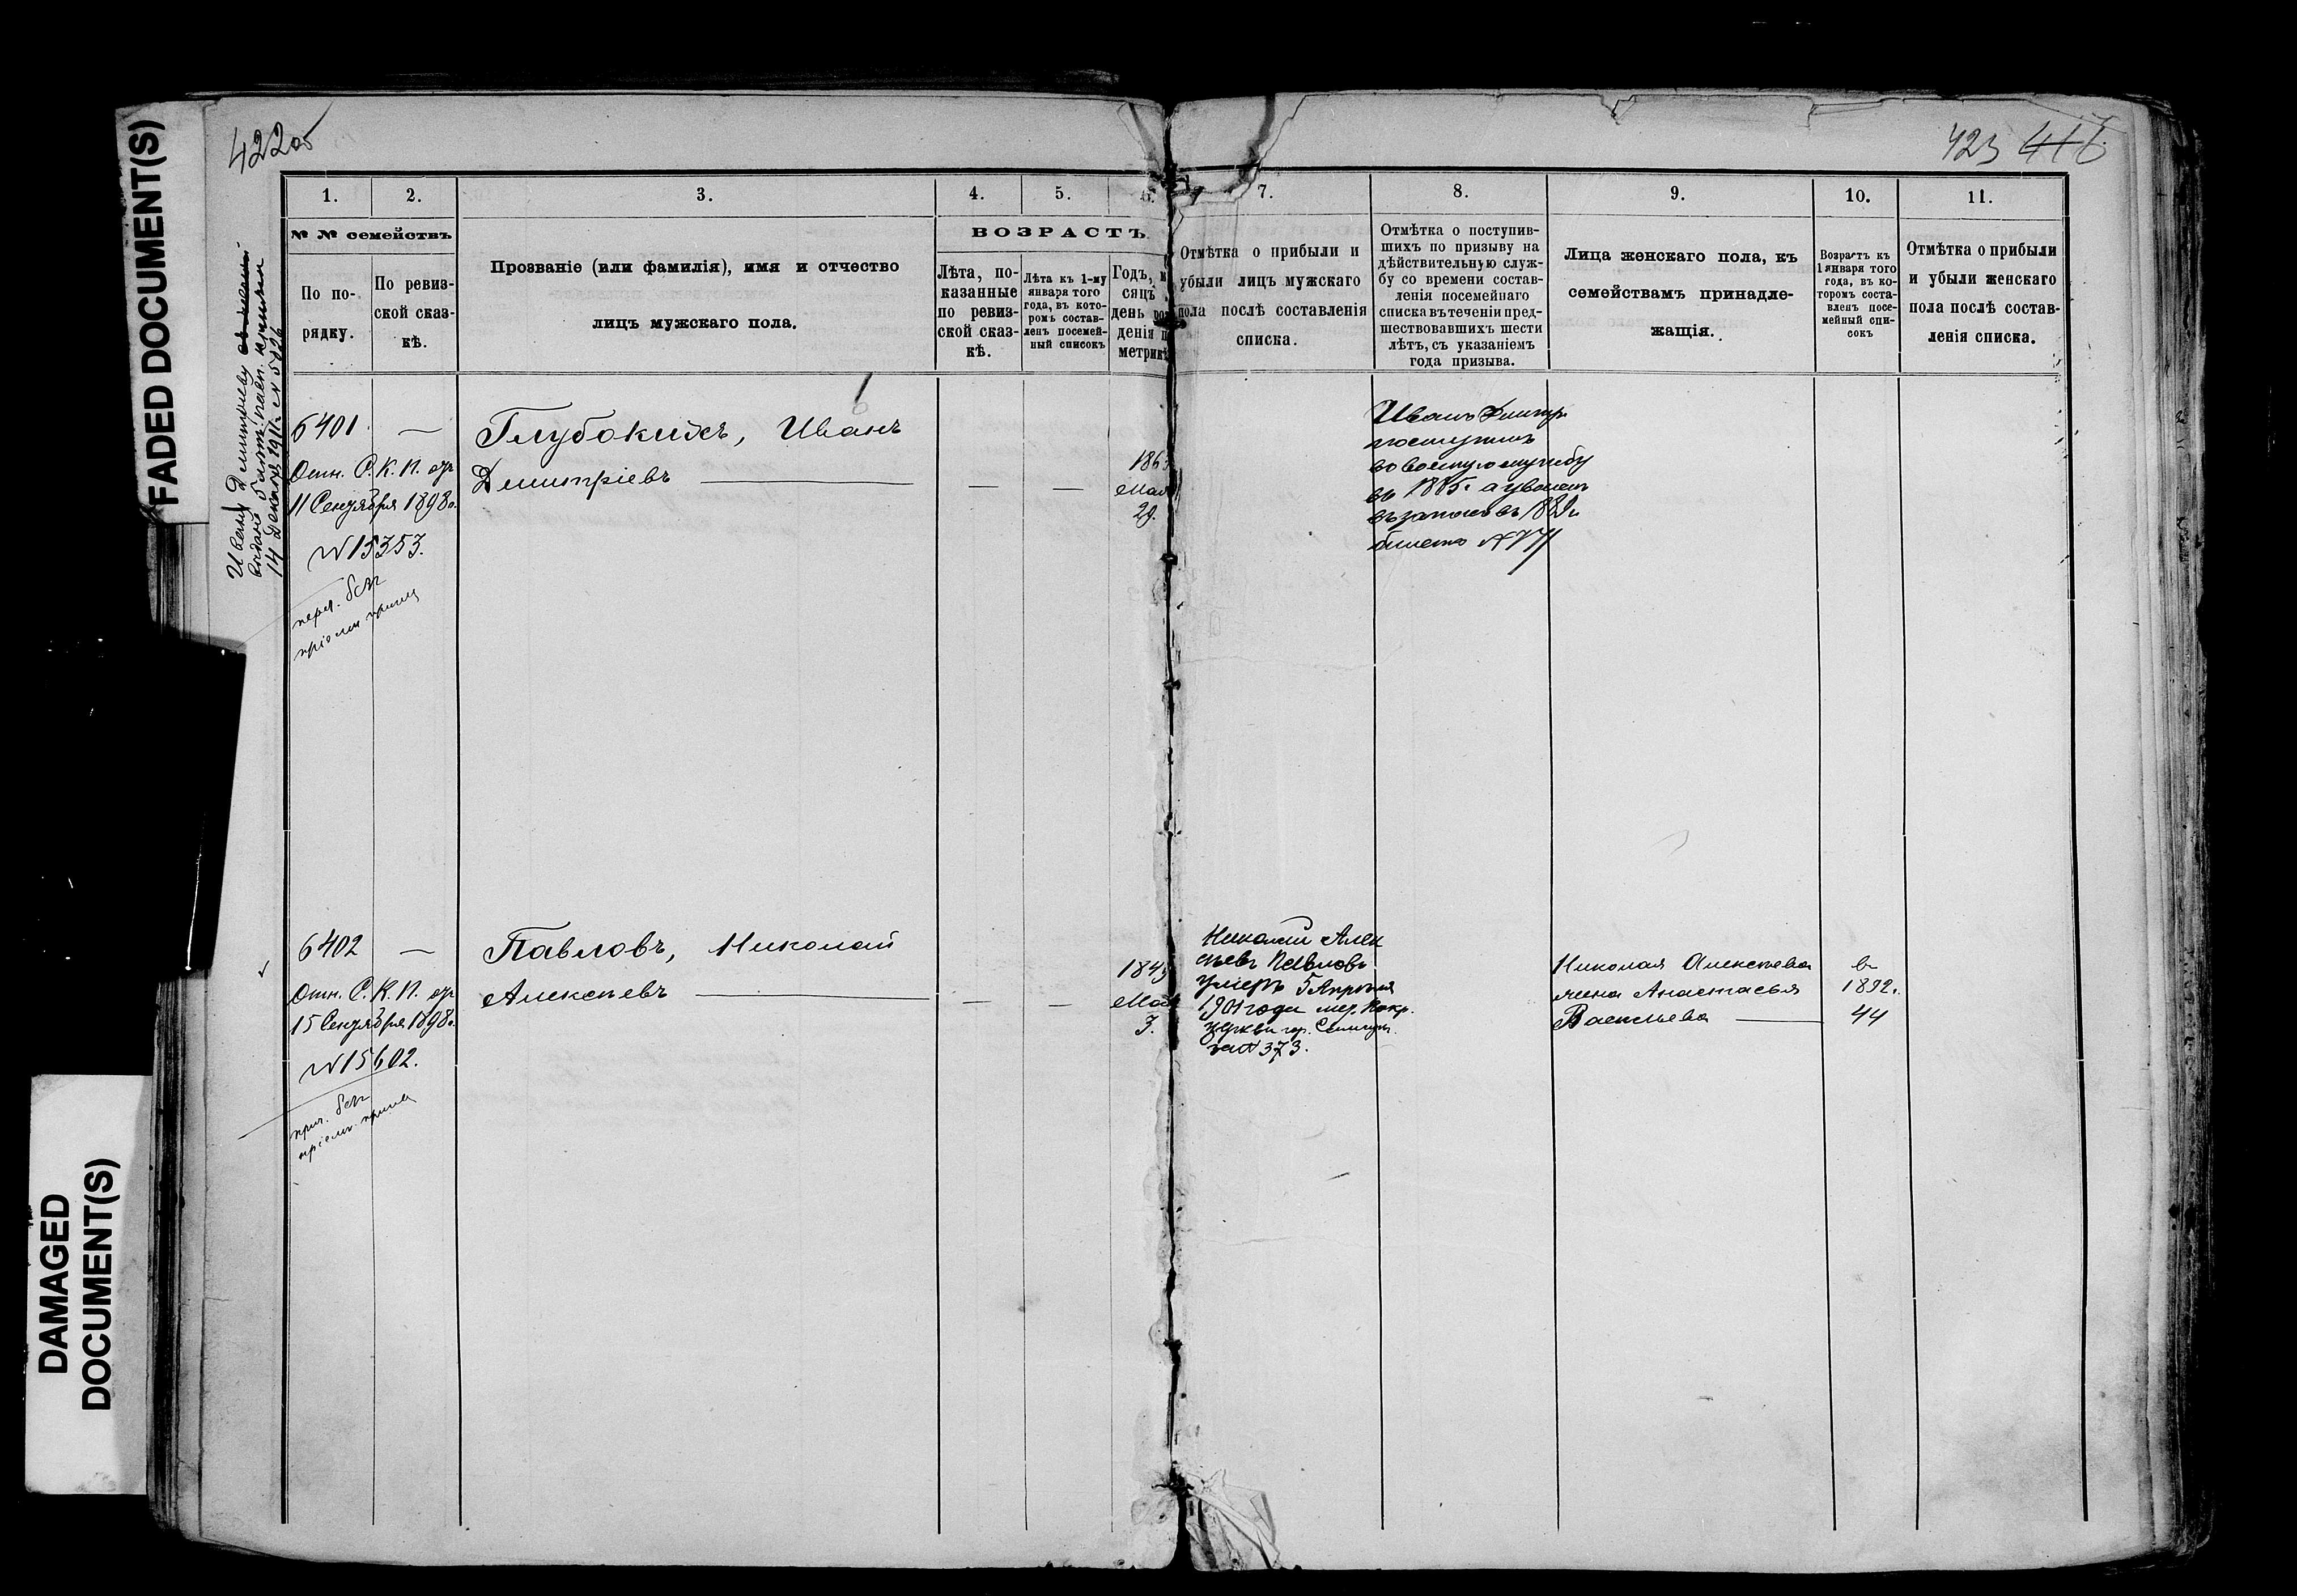 FADED DOCUMENT(S)
DAMAGED
DOCUMENT(S)
422об
423 416
1.
2.
3.
4.
5.
6.
7.
8.
9.
10.
11.
№ № семействъ
По по-
рядку.
По ревиз-
ской сказ-
кѣ.
Прозваніе (или фамилія), имя и отчество
лицъ мужскаго пола.
ВОЗРАСТЪ
Лѣта, по-
казанные
по ревиз-
ской сказ-
кѣ.
Лѣта къ 1-му
января того
года, въ кото-
ромъ состав-
ленъ посемей-
ный списокъ
Годъ, м
сяцъ
день ро
денія п
метрик
Отмѣтка о прибыли и
убыли лицъ мужскаго
пола послѣ составленія
списка.
Отмѣтка о поступив-
шихъ по призыву на
дѣйствительную служ-
бу со времени состав-
ленія посемейнаго
списка въ теченіи пред-
шествовавшихъ шести
лѣтъ, съ указаніемъ
года призыва.
Лица женскаго пола, къ
семействамъ принадле-
жащія.
Возрастъ къ
1 января того
года, въ ко-
торомъ соста-
вленъ посе-
мейный спи-
сокъ
Отмѣтка о прибыли
и убыли женскаго
пола послѣ состав-
ленія списка.
Ивану Димитріеву
14 Декабря 1911 г. № 5026
6401 —
Отн. С.К.П. отъ
11 Сентября 1898 г.
№ 15353.
Глубокихъ, Иванъ
Димитріевъ
— —
186
Мая
29.
Иванъ Димтр
поступилъ
во военную службу
въ 1885 г. а уволенъ
въ запасъ въ 1889 г.
билетъ №
6402 —
Отн. С.К.П. отъ
15 Сентября 1898 г.
№ 15602.
Павловъ, Николай
Алексѣевъ
— —
184
Мая
3.
Николай Алек
сѣевъ Павловъ
умеръ 5 Апрѣля
1901 года мер. Покр.
церкви гор.
за № 373.
Николая Алексѣева
жена Анастасья
Васильева
въ
1892 г.
44